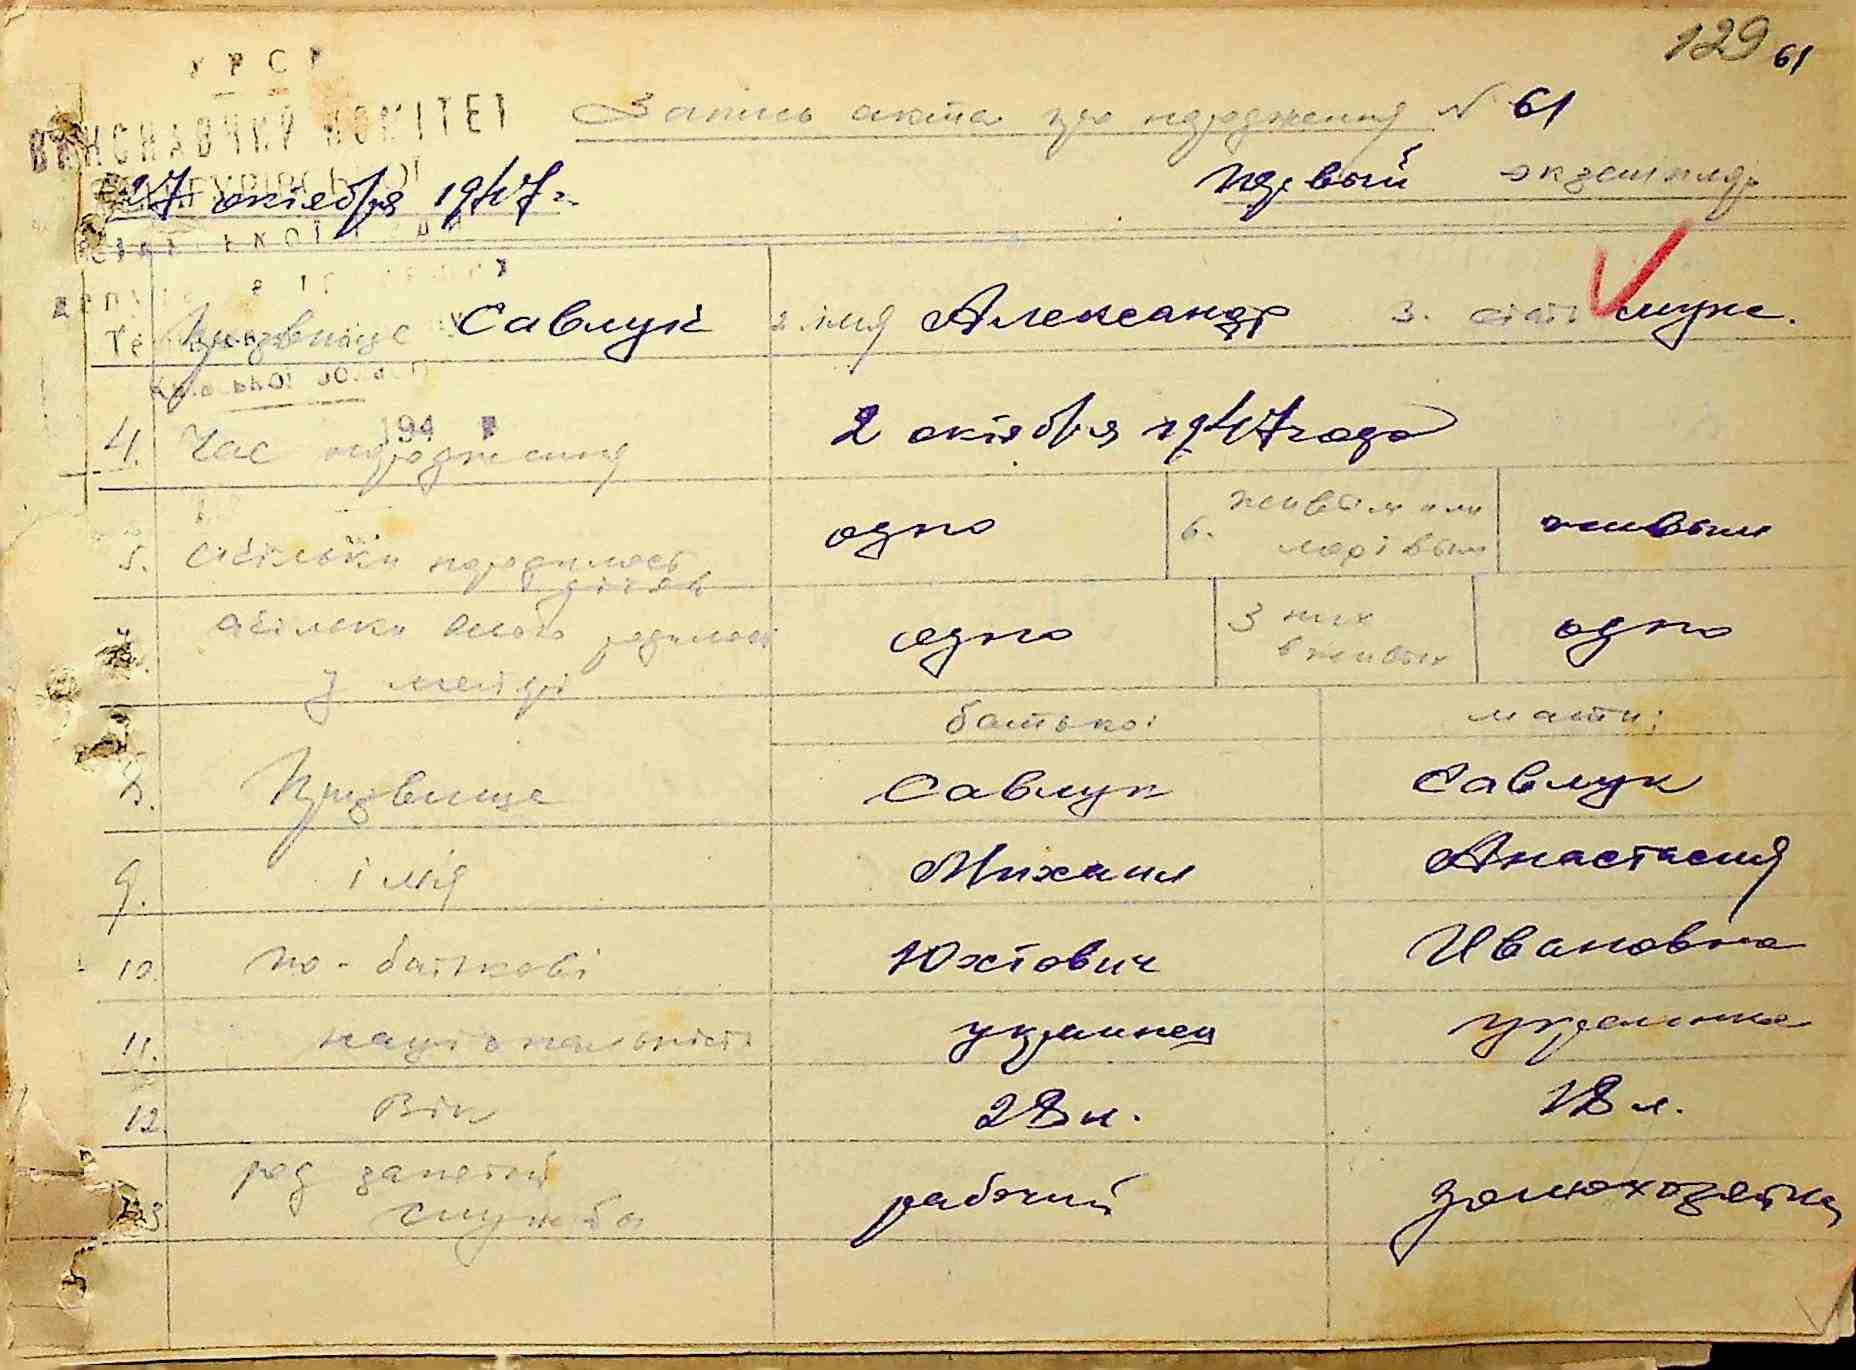 129 61
У Р С Р
ВИКОНАВЧИЙ КОМІТЕТ
Запись акта про народження № 61
27 октября 1947 г.
первый экземпляр
Призвище Савлук 2. імя Александр 3. стать муж.
194 р
4. Час народження 2 октября 1947 года
5. скільки народилось дітей одно 6. живым или мертвым живым
7. скільки всього родилось у матері одно З них в живых одно
батько: мати:
8. Призвище Савлук Савлук
9. імя Михаил Анастасия
10. по-батькові Юхтович Ивановна
11. національність украинец украинка
12. Вік 28 л. 18 л.
13. род занятий службы рабочий